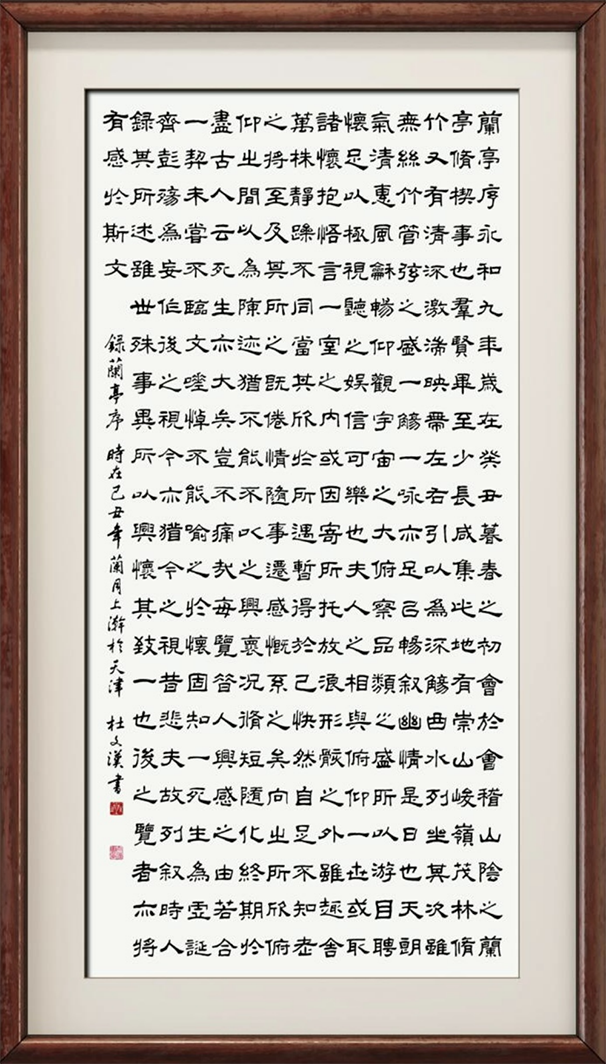 蘭亭序永和九年歲在癸丑暮春之初會於會稽山陰之蘭
亭脩禊事也羣賢畢至少長咸集此地有崇山峻嶺茂林脩
竹又有清流激湍映帶左右引以為流觴曲水列坐其次雖
無絲竹管弦之盛一觴一詠亦足以暢敘幽情是日也天朗
氣清惠風龢暢仰觀宇宙之大俯察品類之盛所以游目騁
懷足以極視聽之娛信可樂也夫人之相與俯仰一世或取
諸懷抱悟言一室之內或因寄所托放浪形骸之外雖趣舍
萬殊靜躁不同當其欣於所遇暫得於己快然自足不知老
之將至及其所之既倦情隨事遷感慨系之矣向之所欣俯
仰之間以為陳迹猶不能不以之興懷況脩短隨化終期於
盡古人云死生亦大矣豈不痛哉每覽昔人興感之由若合
一契未嘗不臨文嗟悼不能喻之於懷固知一死生為虛誕
齊彭殤為妄作後之視今亦猶今之視昔悲夫故列敘時人
錄其所述雖世殊事異所以興懷其致一也後之覽者亦將
有感於斯文
錄蘭亭序 時在己丑年蘭月上澣於天津 杜文漢書